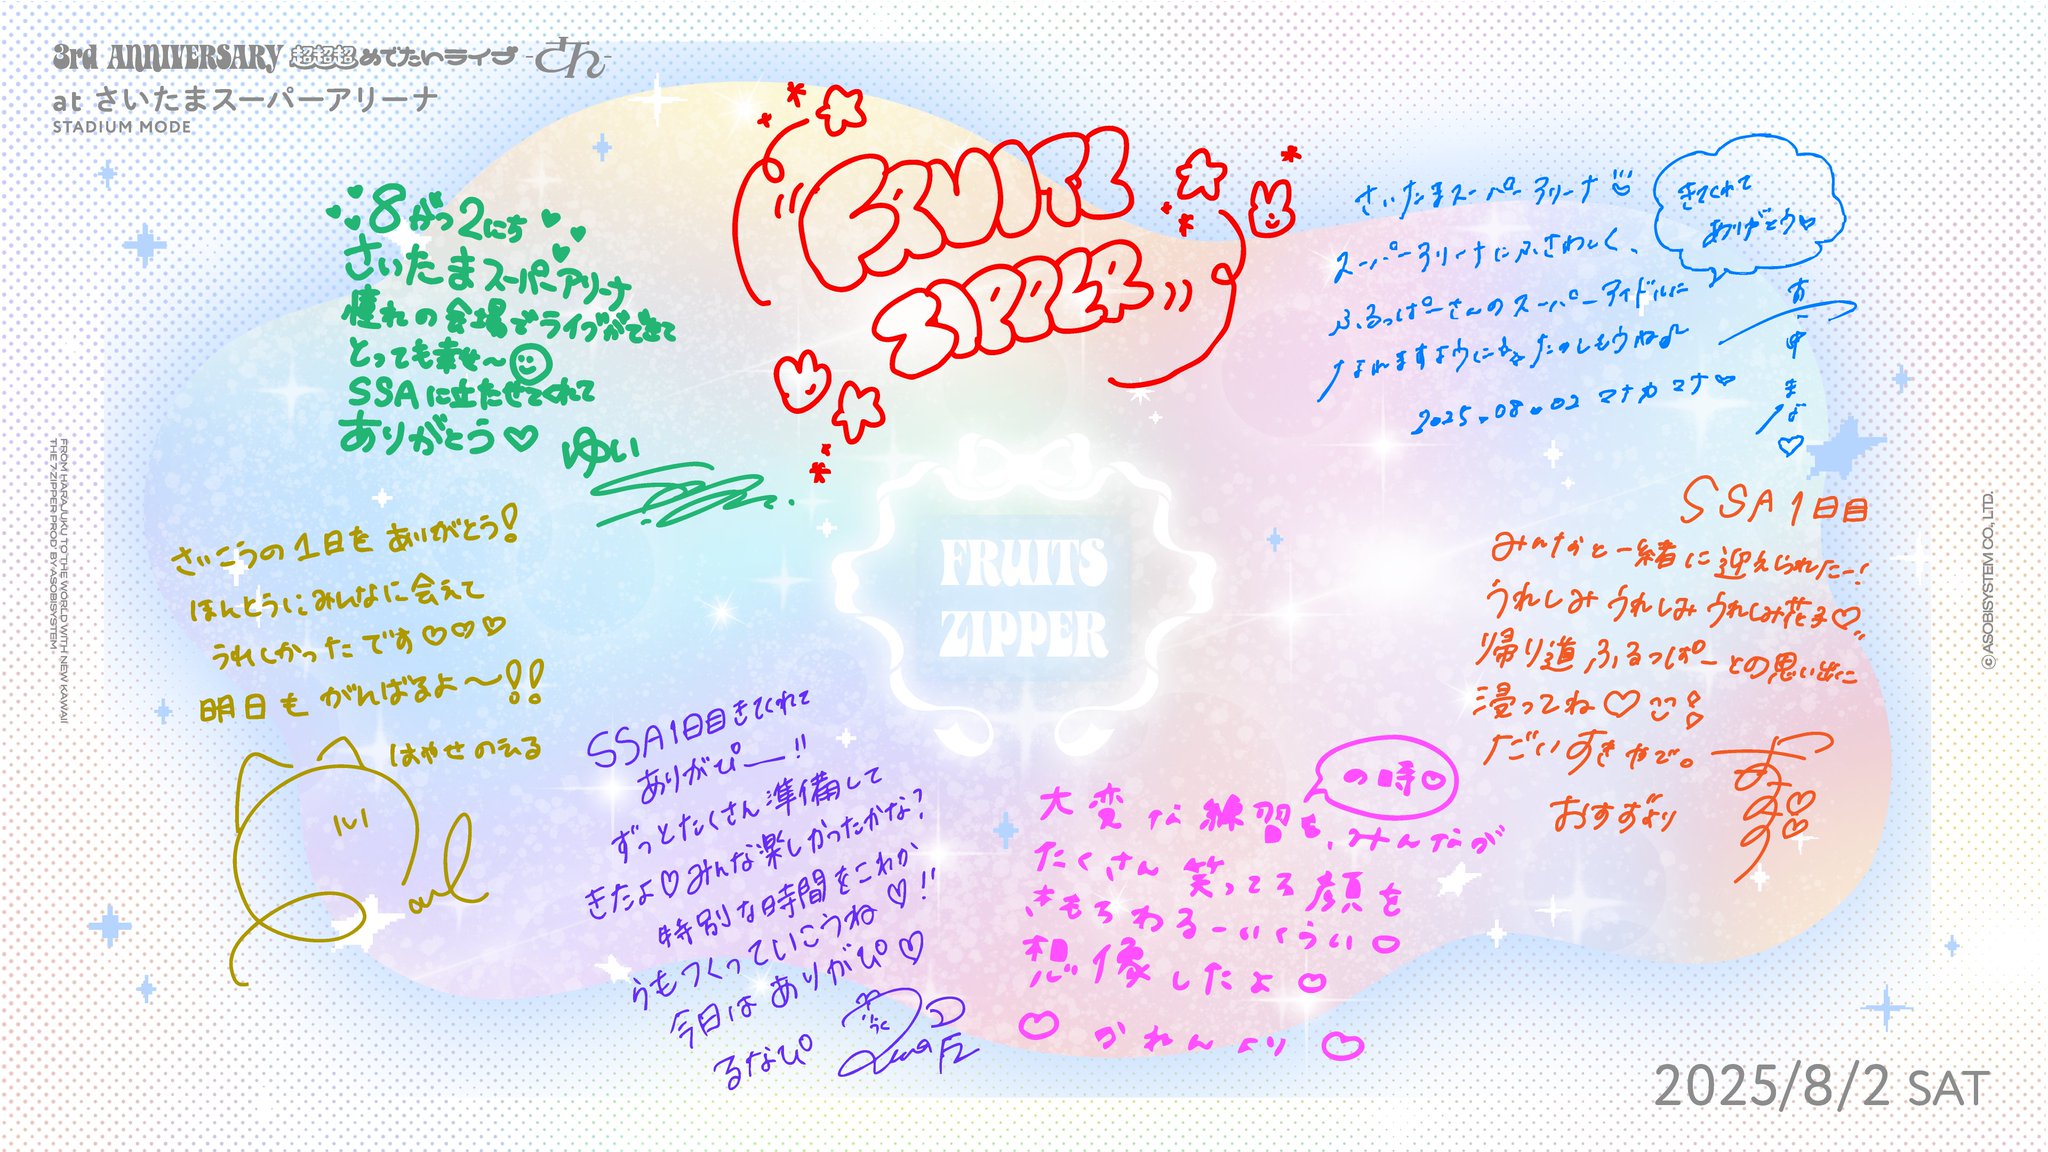 3rd ANNIVERSARY 超超超めでたいライブ -さん-
at さいたまスーパーアリーナ
STADIUM MODE
FRUITS
ZIPPER
8がつ2にち
さいたまスーパーアリーナ
憧れの会場でライブができて
とっても幸せ〜
SSAに立たせてくれて
ありがとう♡
ゆい
さいたまスーパーアリーナ
スーパーアリーナにふさわしく、
ふるっぱーさんのスーパーアイドルに
なれますように
たのしもうね
2025.08.02 マナカマナ♡
きてくれて
ありがとう♡
さいこうの1日をありがとう!
ほんとうにみんなに会えて
うれしかったです♡♡♡
明日もがんばるよ〜!!
はやせのえる
FRUITS
ZIPPER
SSA1日目
みんなと一緒に迎えられたー!
うれしみうれしみうれしみ花子♡
帰り道ふるっぱーとの思い出に
浸ってね♡
だいすきやで。
おすずより
SSA1日目きてくれて
ありがぴー!!
ずっとたくさん準備して
きたよ♡みんな楽しかったかな?
特別な時間をこれか
らもつくっていこうね♡!!
今日はありがぴ♡
るなぴ
大変な練習も、みんなが
の時♡
たくさん笑ってる顔を
きもちわるーいくらい♡
想像したよ♡
♡かれんより♡
FROM HARAJUKU TO THE WORLD WITH NEW KAWAII
THE 7 ZIPPER PROD' BY ASOBISYSTEM
©ASOBISYSTEM CO., LTD.
2025/8/2 SAT